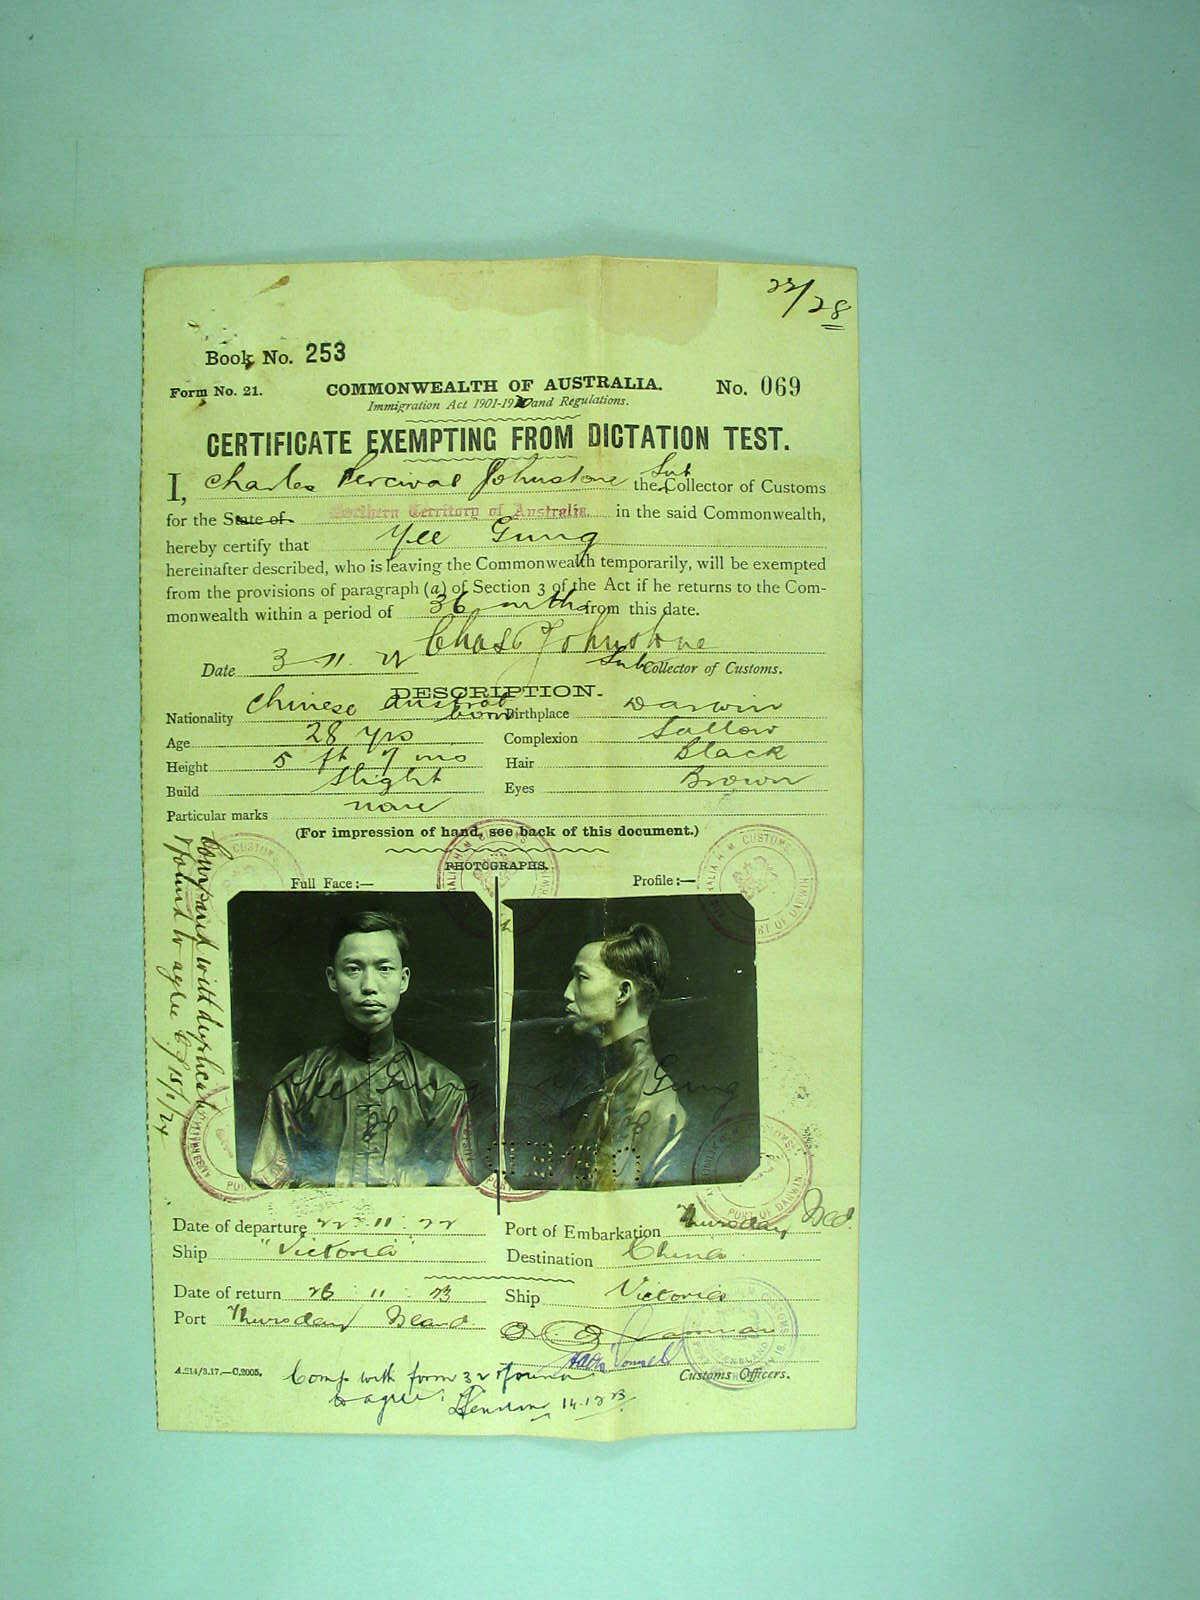 22/28
Book No. 253
Form No. 21. COMMONWEALTH OF AUSTRALIA. No. 069
Immigration Act 1901-1920 and Regulations.
CERTIFICATE EXEMPTING FROM DICTATION TEST.
I, Charles Percival Johnstone the Sub Collector of Customs
for the State of Northern Territory of Australia. in the said Commonwealth,
hereby certify that Yee Gung
hereinafter described, who is leaving the Commonwealth temporarily, will be exempted
from the provisions of paragraph (a) of Section 3 of the Act if he returns to the Com-
monwealth within a period of 36 mths from this date.
Chas Johnstone
Date 3 . 11 . 22 Sub Collector of Customs.
DESCRIPTION.
Nationality Chinese Austral born Birthplace Darwin
Age 28 yrs Complexion Sallow
Height 5 ft 7 ins Hair Black
Build Slight Eyes Brown
Particular marks none
(For impression of hand, see back of this document.)
PHOTOGRAPHS.
Full Face:— Profile:—
Compared with duplicate
& found to agree 15/1/24
Yee Gung Yee Gung
PORT OF DARWIN
Date of departure 22 . 11 . 22 Port of Embarkation Thursday Isld.
Ship "Victoria" Destination China.
Date of return 26 11 23 Ship Victoria
Port Thursday Island.
A.214/3.17.—C.2005. Customs Officers.
Comp with form 32 & found
to agree 14.12.23